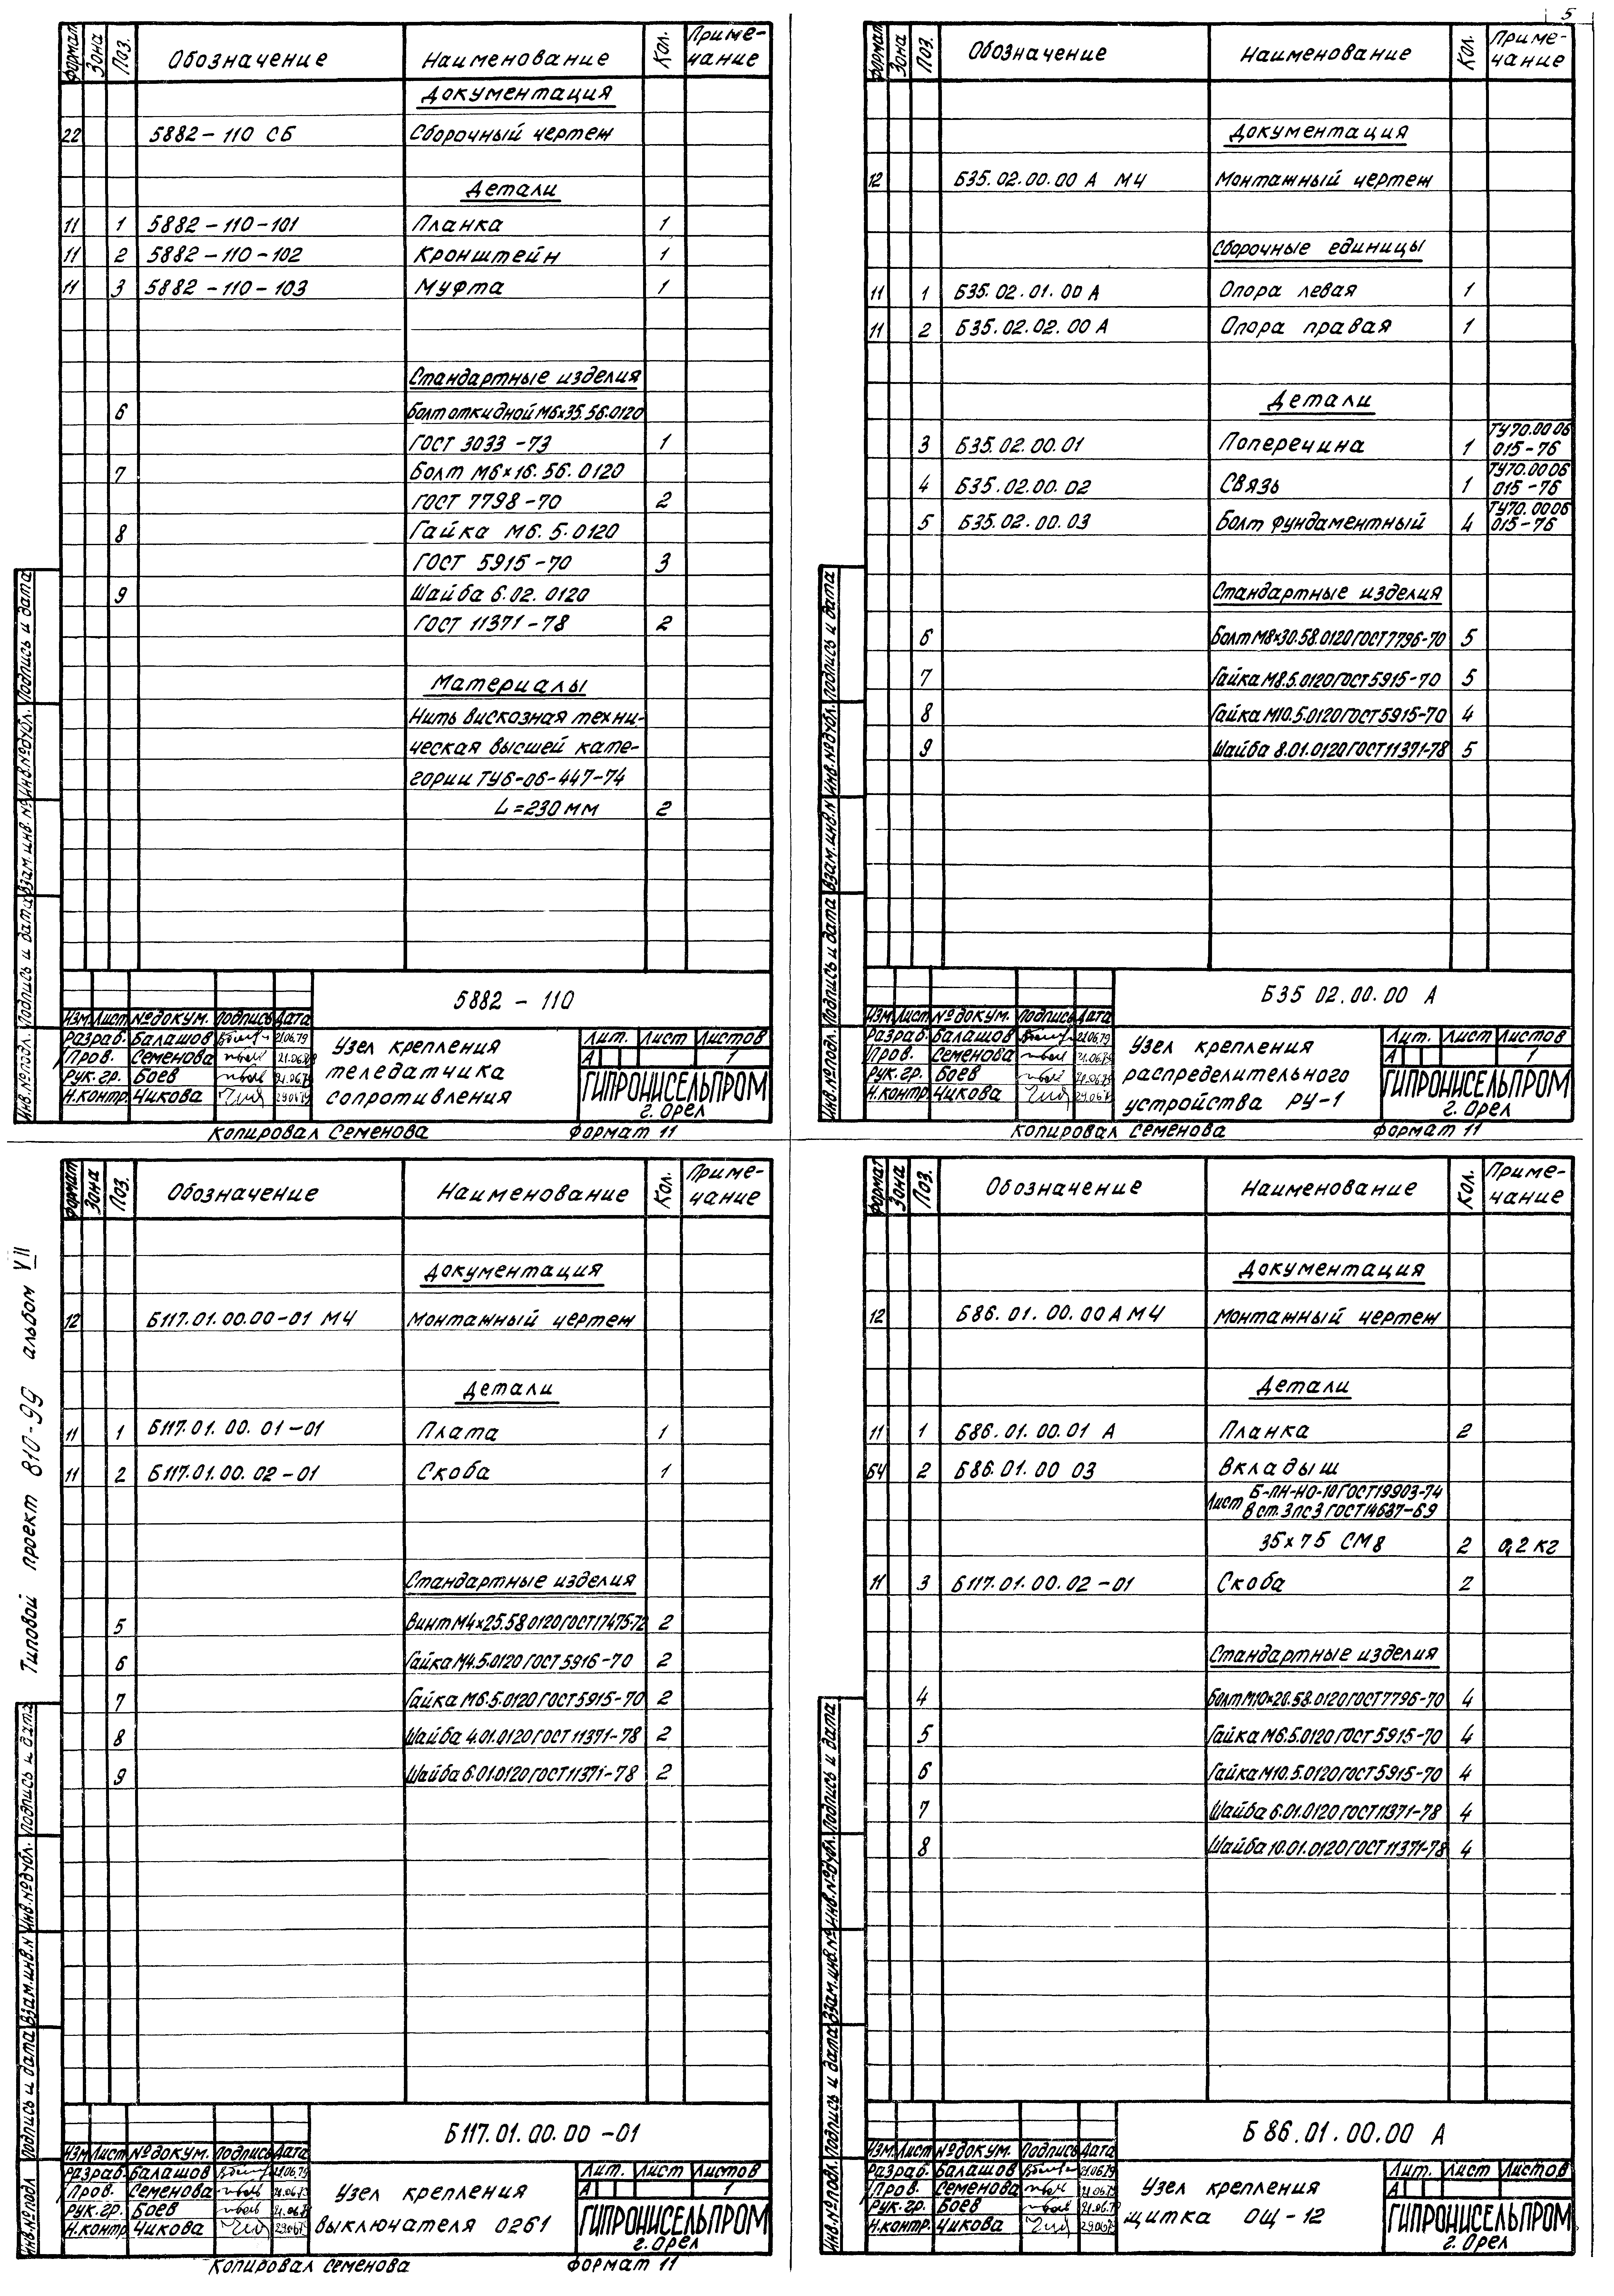 5
Формат Зона Поз. Обозначение Наименование Кол. Приме-
чание
Документация
22 5882-110 СБ Сборочный чертеж
Детали
11 1 5882-110-101 Планка 1
11 2 5882-110-102 Кронштейн 1
11 3 5882-110-103 Муфта 1
Стандартные изделия
6 Болт откидной М6х35.56.0120
ГОСТ 3033-73 1
7 Болт М6х16.56.0120
ГОСТ 7798-70 2
8 Гайка М6.5.0120
ГОСТ 5915-70 3
9 Шайба 6.02.0120
ГОСТ 11371-78 2
Материалы
Нить вискозная техни-
ческая высшей кате-
гории ТУ6-06-447-74
L=230 мм 2
Инв.№подл. Подпись и дата Взам.инв.№ Инв.№дубл. Подпись и дата
5882-110
Изм Лист №докум. Подпись Дата
Разраб. Балашов 21.06.79
Пров. Семенова 21.06.79
Рук.гр. Боев 21.06.79
Н.контр. Чикова 29.06.79
Узел крепления
теледатчика
сопротивления
Лит. Лист Листов
А 1
ГИПРОНИСЕЛЬПРОМ
г. Орел
Копировал Семенова Формат 11
Формат Зона Поз. Обозначение Наименование Кол. Приме-
чание
Документация
12 Б35.02.00.00 А МЧ Монтажный чертеж
Сборочные единицы
11 1 Б35.02.01.00 А Опора левая 1
11 2 Б35.02.02.00 А Опора правая 1
Детали
3 Б35.02.00.01 Поперечина 1 ТУ70.0006
015-76
4 Б35.02.00.02 Связь 1 ТУ70.0006
015-76
5 Б35.02.00.03 Болт фундаментный 4 ТУ70.0006
015-76
Стандартные изделия
6 Болт М8х30.58.0120 ГОСТ 7796-70 5
7 Гайка М8.5.0120 ГОСТ 5915-70 5
8 Гайка М10.5.0120 ГОСТ 5915-70 4
9 Шайба 8.01.0120 ГОСТ 11371-78 5
Инв.№подл. Подпись и дата Взам.инв.№ Инв.№дубл. Подпись и дата
Б35 02.00.00 А
Изм Лист №докум. Подпись Дата
Разраб. Балашов 21.06.79
Пров. Семенова 21.06.79
Рук.гр. Боев 21.06.79
Н.контр. Чикова 29.06.79
Узел крепления
распределительного
устройства РУ-1
Лит. Лист Листов
А 1
ГИПРОНИСЕЛЬПРОМ
г. Орел
Копировал Семенова Формат 11
Типовой проект 810-99 альбом VII
Формат Зона Поз. Обозначение Наименование Кол. Приме-
чание
Документация
12 Б117.01.00.00-01 МЧ Монтажный чертеж
Детали
11 1 Б117.01.00.01-01 Плата 1
11 2 Б117.01.00.02-01 Скоба 1
Стандартные изделия
5 Винт М4х25.58.0120 ГОСТ 17475-72 2
6 Гайка М4.5.0120 ГОСТ 5916-70 2
7 Гайка М6.5.0120 ГОСТ 5915-70 2
8 Шайба 4.01.0120 ГОСТ 11371-78 2
9 Шайба 6.01.0120 ГОСТ 11371-78 2
Инв.№подл. Подпись и дата Взам.инв.№ Инв.№дубл. Подпись и дата
Б117.01.00.00-01
Изм Лист №докум. Подпись Дата
Разраб. Балашов 21.06.79
Пров. Семенова 21.06.79
Рук.гр. Боев 21.06.79
Н.контр. Чикова 29.06.79
Узел крепления
выключателя 0261
Лит. Лист Листов
А 1
ГИПРОНИСЕЛЬПРОМ
г. Орел
Копировал Семенова Формат 11
Формат Зона Поз. Обозначение Наименование Кол. Приме-
чание
Документация
12 Б86.01.00.00 А МЧ Монтажный чертеж
Детали
11 1 Б86.01.00.01 А Планка 2
БЧ 2 Б86.01.00 03 Вкладыш
Лист Б-ПН-НО-10 ГОСТ 19903-74
В ст.3 пс3 ГОСТ 14637-69
35х75 СМ8 2 0,2 кг
11 3 Б117.01.00.02-01 Скоба 2
Стандартные изделия
4 Болт М10х26.58.0120 ГОСТ 7796-70 4
5 Гайка М6.5.0120 ГОСТ 5915-70 4
6 Гайка М10.5.0120 ГОСТ 5915-70 4
7 Шайба 6.01.0120 ГОСТ 11371-78 4
8 Шайба 10.01.0120 ГОСТ 11371-78 4
Инв.№подл. Подпись и дата Взам.инв.№ Инв.№дубл. Подпись и дата
Б 86.01.00.00 А
Изм. Лист №докум. Подпись Дата
Разраб. Балашов 21.06.79
Пров. Семенова 21.06.79
Рук.гр. Боев 21.06.79
Н.контр. Чикова 29.06.79
Узел крепления
щитка ОЩ-12
Лит. Лист Листов
А 1
ГИПРОНИСЕЛЬПРОМ
г. Орел